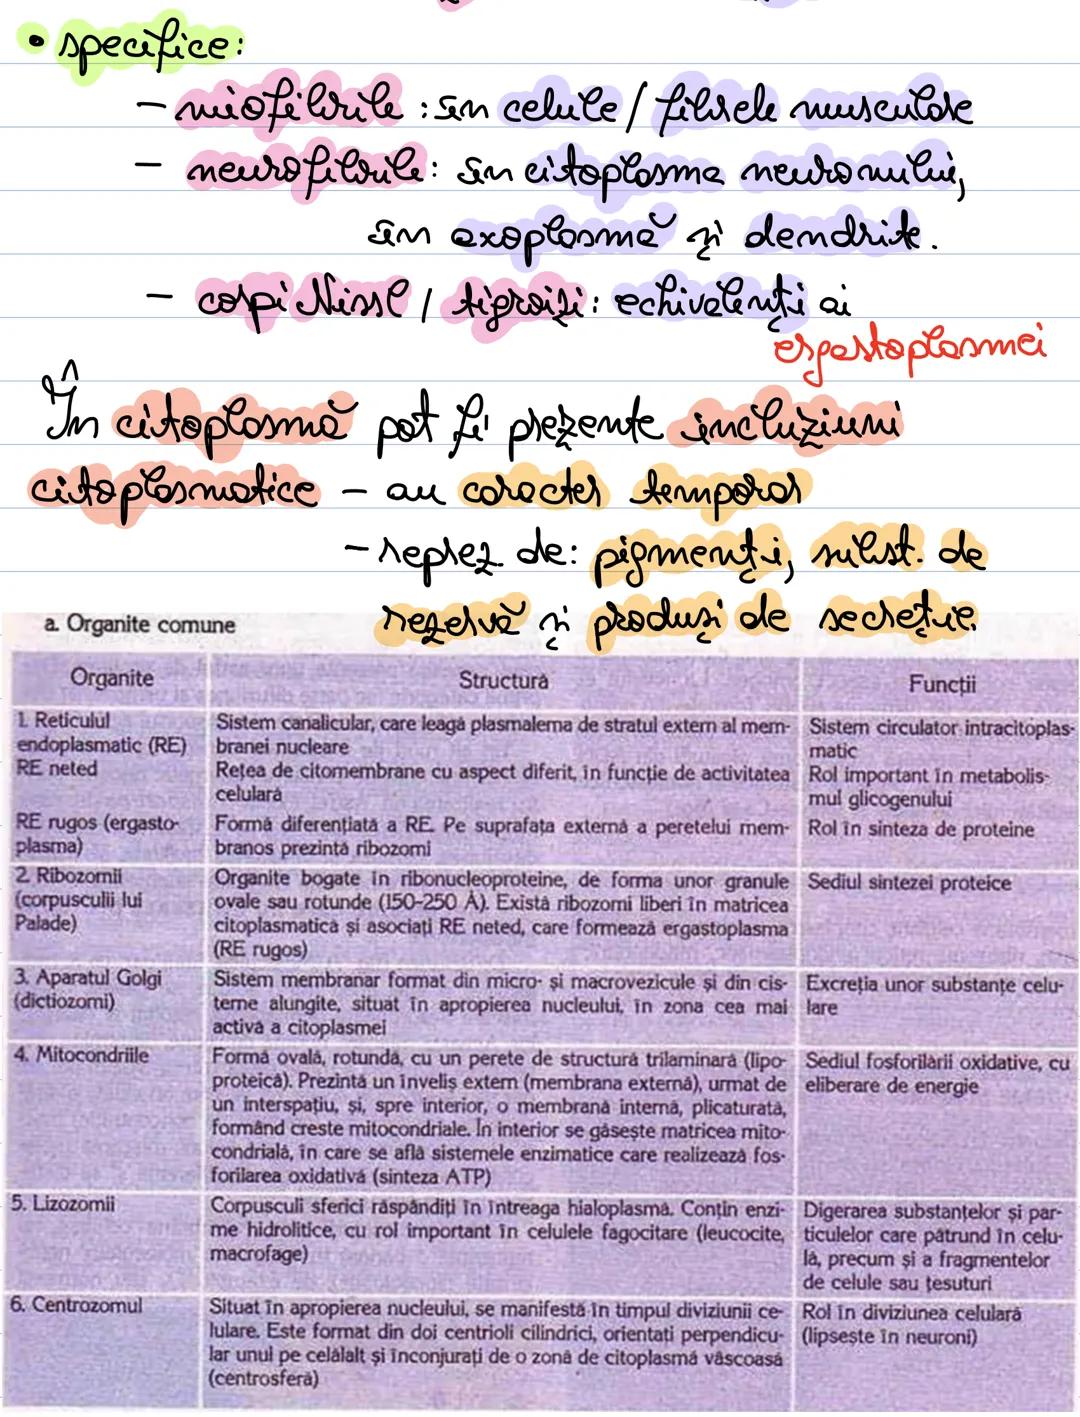 • specifice:
- miofibrile : în celule / fibrele musculare
- neurofibrile: în citoplasma neuronului,
în axoplasmă și dendrite.
- corpi Nissl / tigroizi: echivalenți ai
ergastoplasmei
În citoplasmă pot fi prezente incluziuni
citoplasmatice - au caracter temporar
- reprez. de: pigmenți, subst. de
rezervă și produși de secreție.
a. Organite comune
Organite Structură Funcții
1. Reticulul endoplasmatic (RE)
Sistem canalicular, care leagă plasmalema de stratul extern al mem-
branei nucleare
Sistem circulator intracitoplas-
matic
RE neted
Rețea de citomembrane cu aspect diferit, în funcție de activitatea
celulară
Rol important în metabolis-
mul glicogenului
RE rugos (ergasto-
plasma)
Formă diferențiată a RE. Pe suprafața externă a peretelui mem-
branos prezintă ribozomi
Rol în sinteza de proteine
2. Ribozomii
(corpusculii lui
Palade)
Organite bogate în ribonucleoproteine, de forma unor granule
ovale sau rotunde (150-250 Å). Există ribozomi liberi în matricea
citoplasmatică și asociați RE neted, care formează ergastoplasma
(RE rugos)
Sediul sintezei proteice
3. Aparatul Golgi
(dictiozomi)
Sistem membranar format din micro- și macrovezicule și din cis-
terne alungite, situat în apropierea nucleului, în zona cea mai
activă a citoplasmei
Excreția unor substanțe celu-
lare
4. Mitocondriile
Formă ovală, rotundă, cu un perete de structură trilaminară (lipo-
proteică). Prezintă un înveliș extern (membrana externă), urmat de
un interspațiu, și, spre interior, o membrană internă, plicaturată,
formând creste mitocondriale. În interior se găsește matricea mito-
condrială, în care se află sistemele enzimatice care realizează fos-
forilarea oxidativă (sinteza ATP)
Sediul fosforilării oxidative, cu
eliberare de energie
5. Lizozomii
Corpusculi sferici răspândiți în întreaga hialoplasmă. Conțin enzi-
me hidrolitice, cu rol important în celulele fagocitare (leucocite,
macrofage)
Digerarea substanțelor și par-
ticulelor care pătrund în celu-
lă, precum și a fragmentelor
de celule sau țesuturi
6. Centrozomul
Situat în apropierea nucleului, se manifestă în timpul diviziunii ce-
lulare. Este format din doi centrioli cilindrici, orientați perpendicu-
lar unul pe celălalt și înconjurați de o zonă de citoplasmă vâscoasă
(centrosferă)
Rol în diviziunea celulară
(lipsește în neuroni)